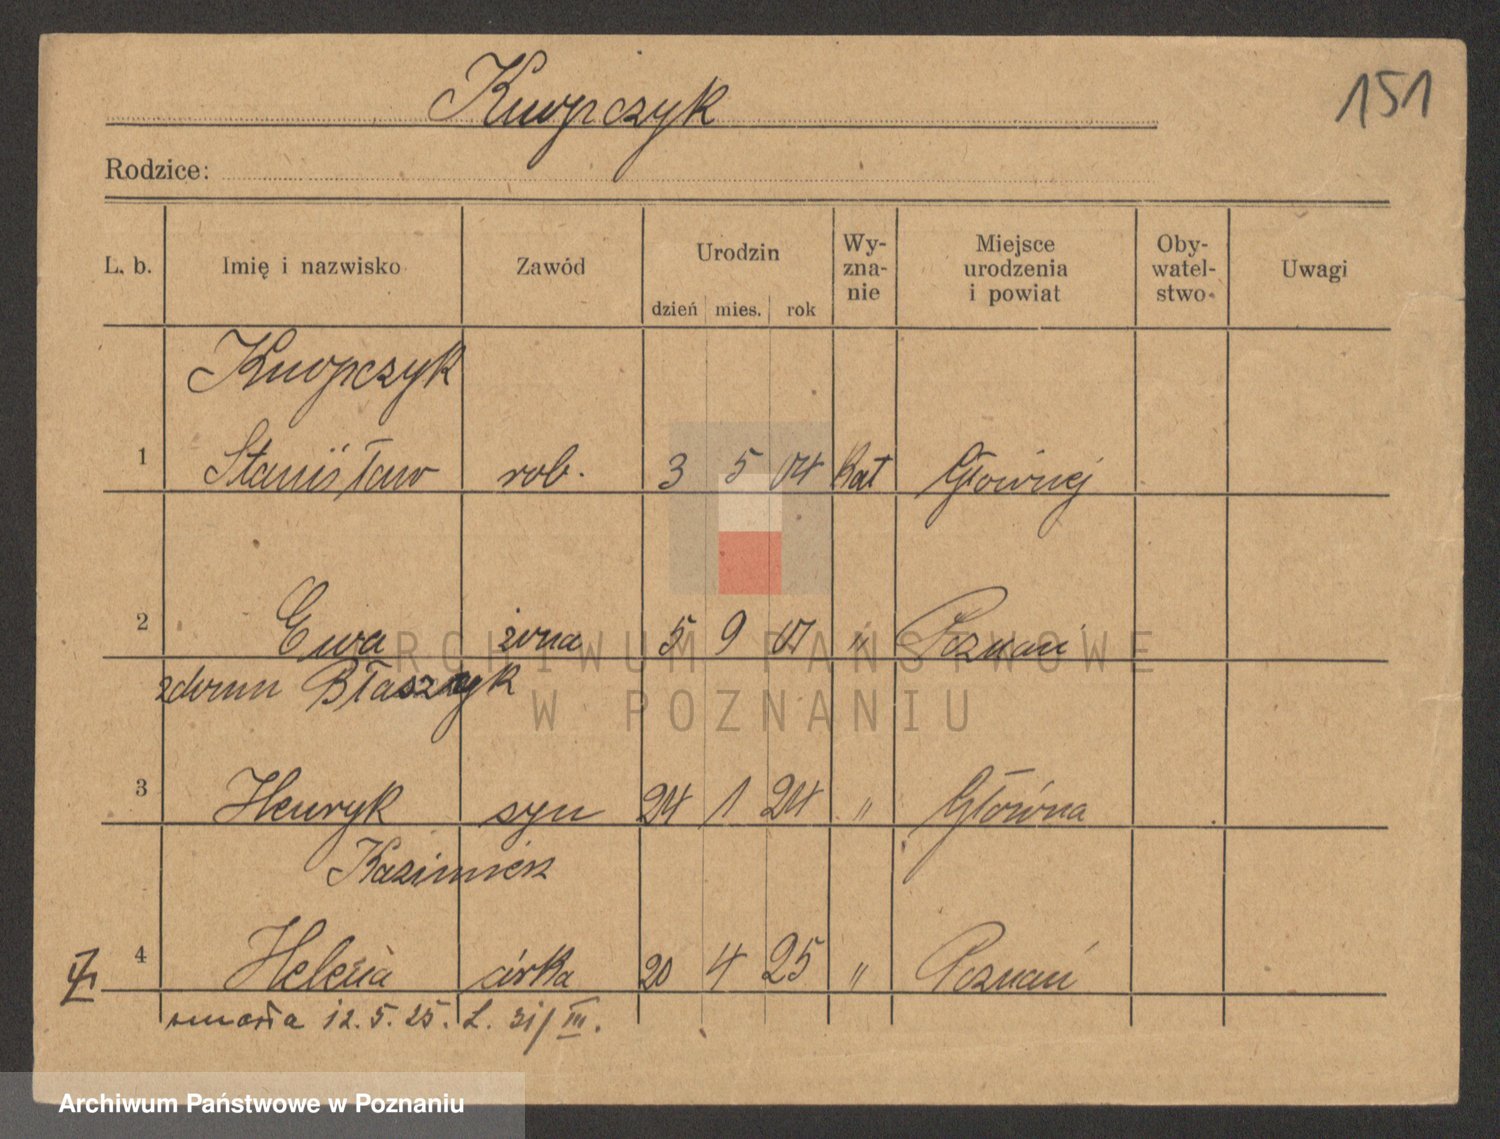 Knopczyk
151
Rodzice:
L. b. Imię i nazwisko Zawód Urodzin dzień mies. rok Wy-zna-nie Miejsce urodzenia i powiat Oby-watel-stwo Uwagi
Knopczyk
1 Stanisław rob. 3 5 04 Kat Głównej
2 Ewa żona 5 9 07 " Poznań
zdomu Błaszczyk
3 Henryk syn 24 1 24 " Główna
Kazimierz
4 Helena córka 20 4 25 " Poznań
zmarła 12.5.25. L. 31/III.
ARCHIWUM PAŃSTWOWE
W POZNANIU
Archiwum Państwowe w Poznaniu